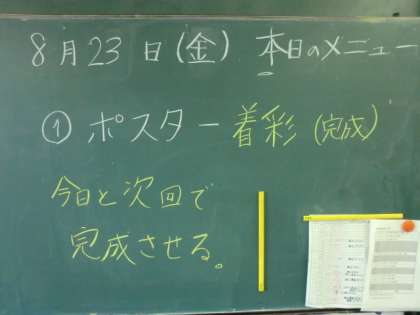 8月23日(金) 本日のメニュー
① ポスター着彩(完成)
今日と次回で
完成させる。